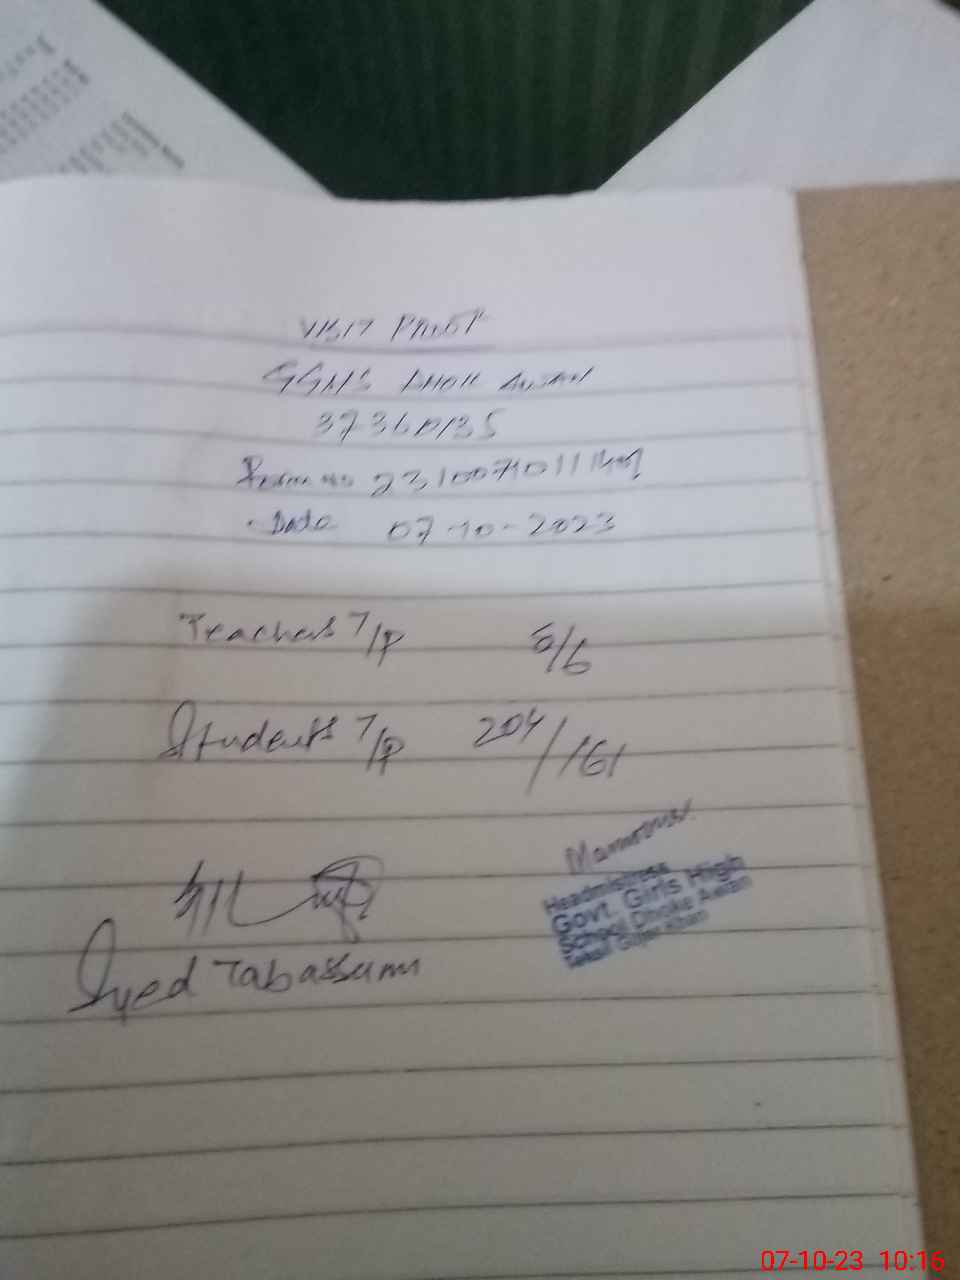 VISIT PROOF
GGHS DHOK AWAN
37360135
Date 07-10-2023
Teachers T/P 6/6
Students T/P 204/161
Syed Tabassum
Headmistress
Govt. Girls High
School Dhoke Awan
Tehsil Gujar Khan
07-10-23 10:16